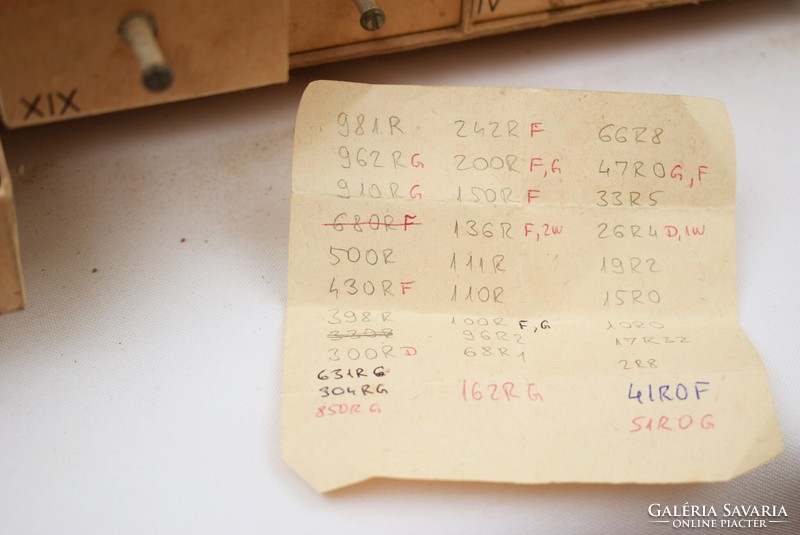 XIX
IV
981R
962R G
910R G
680R F
500R
430R F
398R
330R
300R D
631R G
304R G
850R G
242R F
200R F,G
150R F
136R F,2W
111R
110R
100R F,G
96R2
68R1
162R G
66R8
47R0 G,F
33R5
26R4 D,1W
19R2
15R0
10R0
17R32
2R8
41R0F
51R0 G
GALÉRIA SAVARIA
ONLINE PIACTÉR